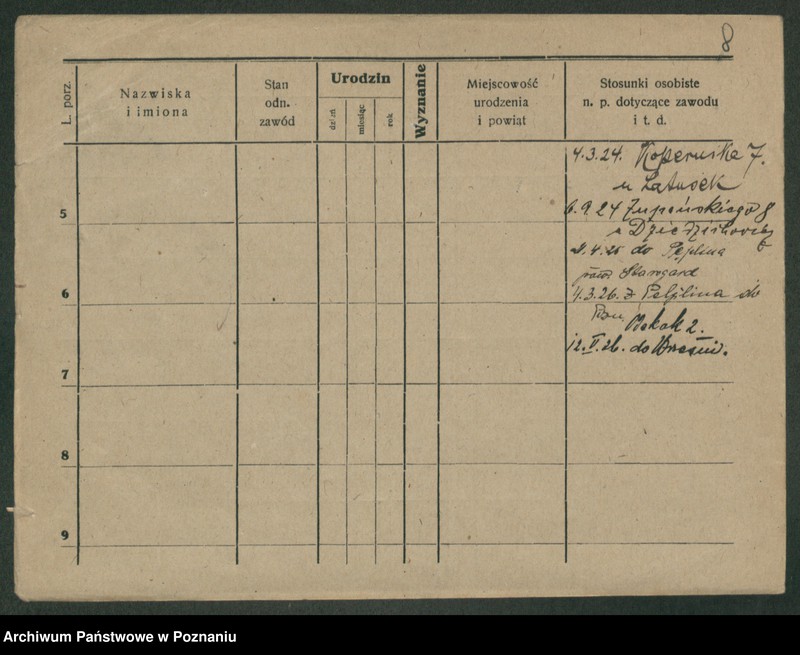 8
L. porz.
Nazwiska
i imiona
Stan
odn.
zawód
Urodzin
dzień
miesiąc
rok
Wyznanie
Miejscowość
urodzenia
i powiat
Stosunki osobiste
n. p. dotyczące zawodu
i t. d.
4.3.24. Kopernika 7.
u Latusek
5
6.9.24 Żupańskiego 8
u
do Peplina
pow. Starogard
6
4.3.26. z Pelplina do
Pozn.
2.
12.V.26. do Wrześni.
7
8
9
Archiwum Państwowe w Poznaniu